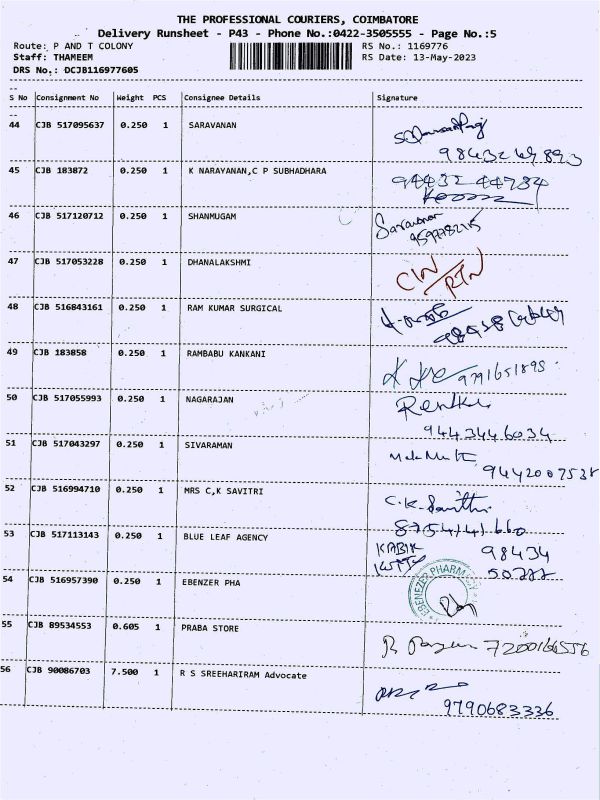 THE PROFESSIONAL COURIERS, COIMBATORE
Delivery Runsheet - P43 - Phone No.:0422-3505555 - Page No.:5
Route: P AND T COLONY
Staff: THAMEEM
DRS No.: DCJB116977605
RS No.: 1169776
RS Date: 13-May-2023
--
S No Consignment No Weight PCS Consignee Details Signature
--
44 CJB 517095637 0.250 1 SARAVANAN
45 CJB 183872 0.250 1 K NARAYANAN,C P SUBHADHARA
94432 44784
46 CJB 517120712 0.250 1 SHANMUGAM
Saravanan
47 CJB 517053228 0.250 1 DHANALAKSHMI
CIN/RTN
48 CJB 516843161 0.250 1 RAM KUMAR SURGICAL
49 CJB 183858 0.250 1 RAMBABU KANKANI
9791651895
50 CJB 517055993 0.250 1 NAGARAJAN
9443446034
51 CJB 517043297 0.250 1 SIVARAMAN
9442007538
52 CJB 516994710 0.250 1 MRS C,K SAVITRI
C.K. Savithri
8754141660
53 CJB 517113143 0.250 1 BLUE LEAF AGENCY
98434
50222
54 CJB 516957390 0.250 1 EBENZER PHA
EBENEZER PHARM
55 CJB 89534553 0.605 1 PRABA STORE
7200166556
56 CJB 90086703 7.500 1 R S SREEHARIRAM Advocate
9790683336